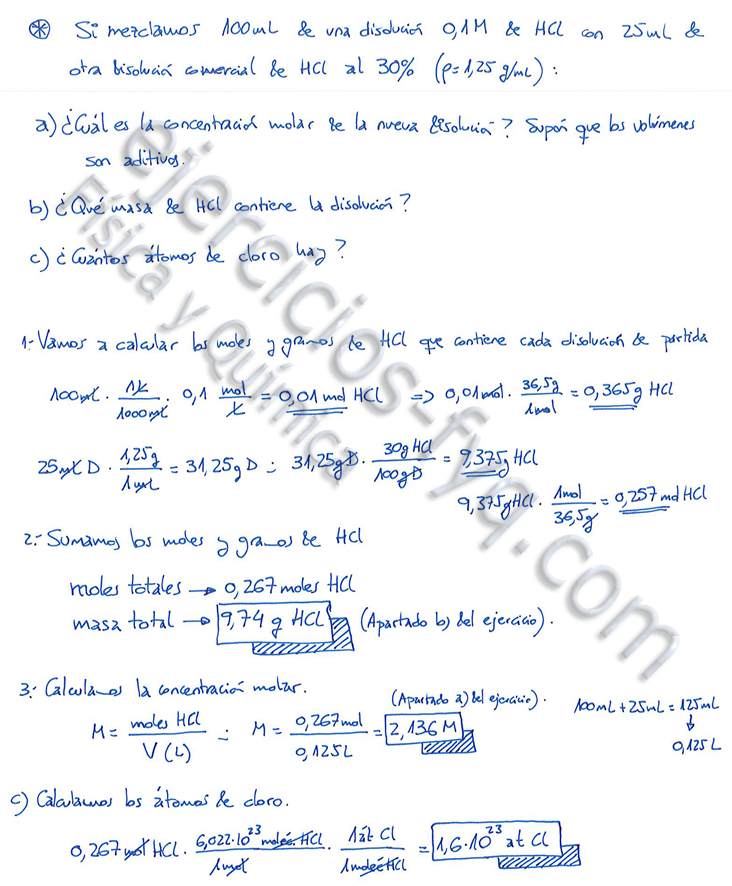 * Si mezclamos 100mL de una disolución 0,1M de HCl con 25mL de
otra disolución comercial de HCl al 30% (ρ=1,25 g/mL):
a) ¿Cuál es la concentración molar de la nueva disolución? Supón que los volúmenes
son aditivos.
b) ¿Qué masa de HCl contiene la disolución?
c) ¿Cuántos átomos de cloro hay?
1.- Vamos a calcular los moles y gramos de HCl que contiene cada disolución de partida
100mL · 1L/1000mL · 0,1 mol/L = 0,01 mol HCl => 0,01mol · 36,5g/1mol = 0,365g HCl
25mL D · 1,25g/1mL = 31,25g D ; 31,25gD · 30gHCl/100gD = 9,375g HCl
9,375gHCl · 1mol/36,5g = 0,257 mol HCl
2.- Sumamos los moles y gramos de HCl
moles totales → 0,267 moles HCl
masa total → 9,74 g HCl (Apartado b) del ejercicio).
3.- Calculamos la concentración molar.
(Apartado a) del ejercicio).
M = moles HCl/V(L) ; M = 0,267mol/0,125L = 2,136 M
100mL + 25mL = 125mL
↓
0,125 L
c) Calculamos los átomos de cloro.
0,267 mol HCl · 6,022·10²³ moléc. HCl/1mol · 1át Cl/1moléc HCl = 1,6·10²³ at Cl
ejercicios-fyq.com
Física y Química